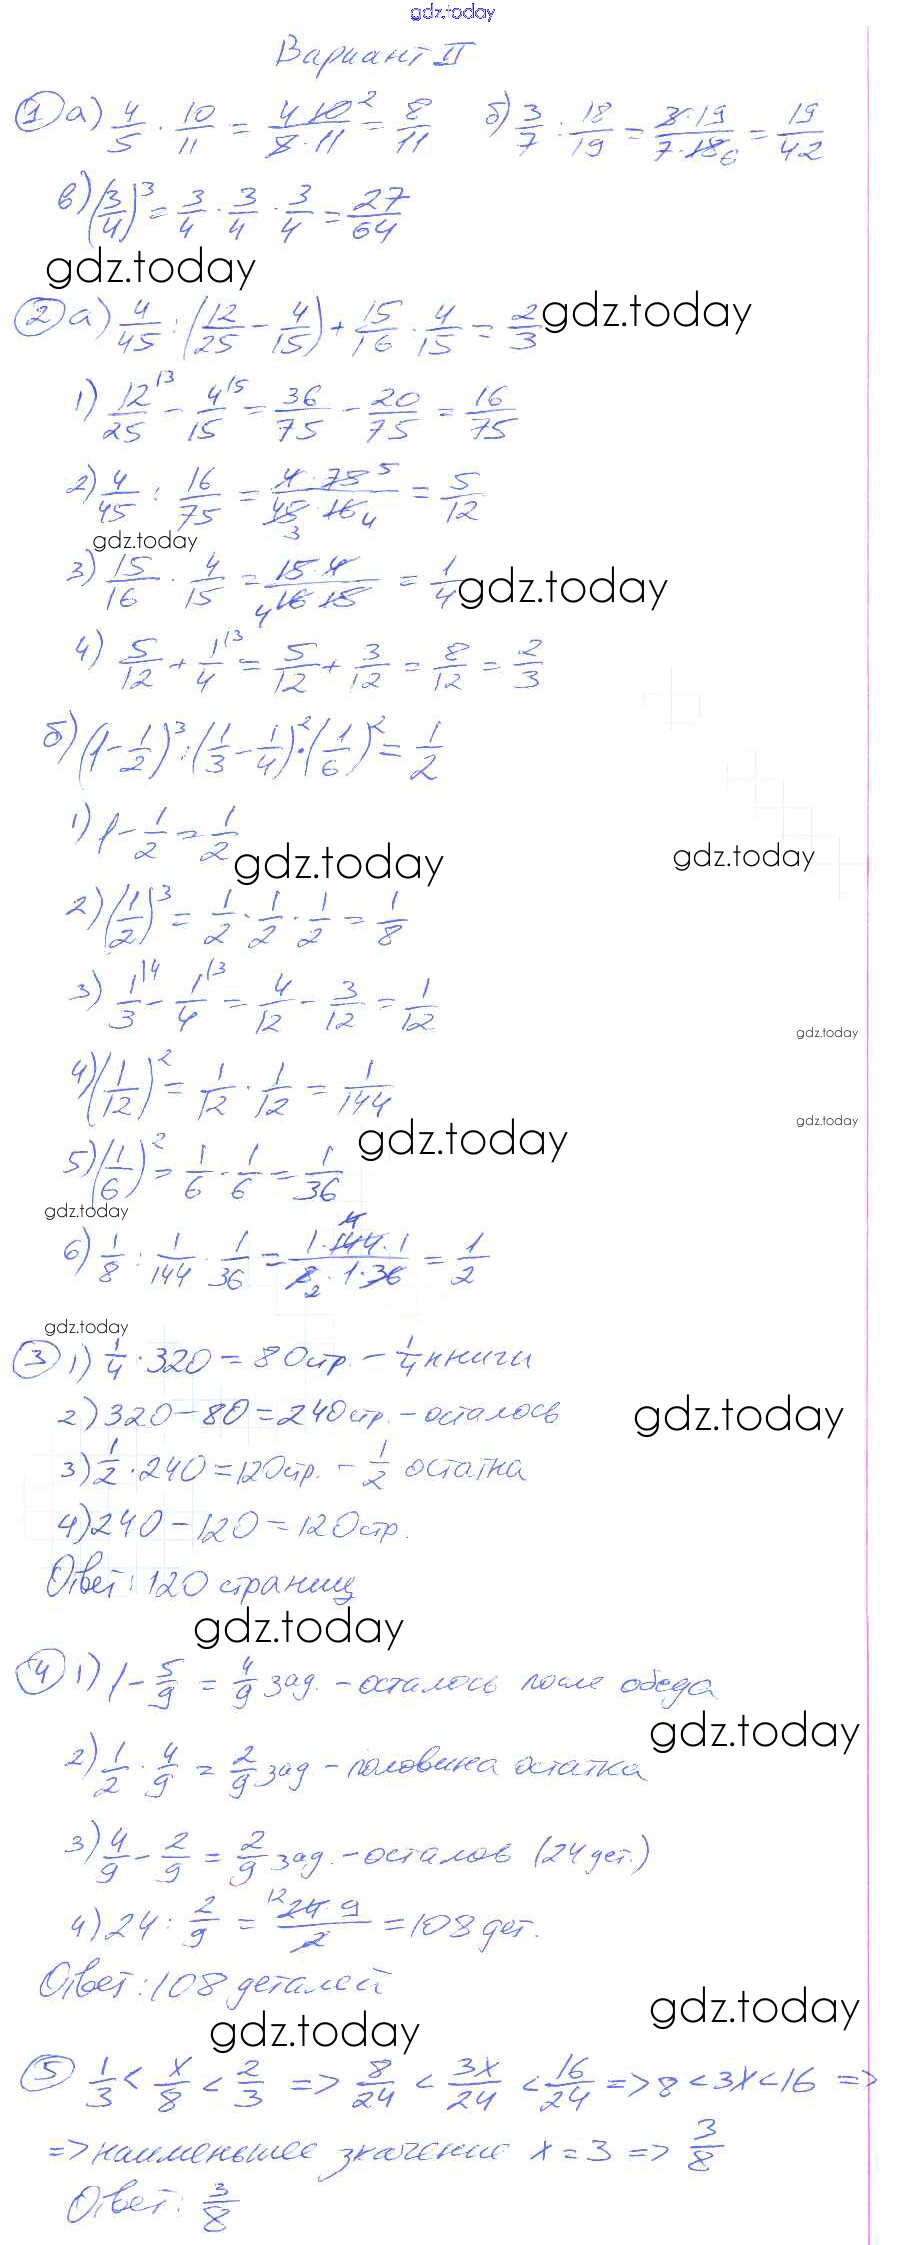 gdz.today
Вариант II
① а) 4/5 · 10/11 = 4·10²/5·11 = 8/11 б) 3/7 : 18/19 = 3·19/7·18₆ = 19/42
в) (3/4)³ = 3/4 · 3/4 · 3/4 = 27/64
gdz.today
② а) 4/45 : (12/25 − 4/15) + 15/16 · 4/15 = 2/3 gdz.today
1) 12|3/25 − 4|5/15 = 36/75 − 20/75 = 16/75
2) 4/45 : 16/75 = 4·75 5/45 3·16 4 = 5/12
gdz.today
3) 15/16 · 4/15 = 15·4/4 16·15 = 1/4 gdz.today
4) 5/12 + 1|3/4 = 5/12 + 3/12 = 8/12 = 2/3
б) (1 − 1/2)³ : (1/3 − 1/4)² · (1/6)² = 1/2
1) 1 − 1/2 = 1/2
gdz.today gdz.today
2) (1/2)³ = 1/2 · 1/2 · 1/2 = 1/8
3) 1|4/3 − 1|3/4 = 4/12 − 3/12 = 1/12
gdz.today
4) (1/12)² = 1/12 · 1/12 = 1/144
gdz.today
gdz.today
5) (1/6)² = 1/6 · 1/6 = 1/36
gdz.today
6) 1/8 : 1/144 · 1/36 = 1·144 4·1/8 2·1·36 = 1/2
gdz.today
③ 1) 1/4 · 320 = 80 стр. − 1/4 книги
2) 320 − 80 = 240 стр. − осталось gdz.today
3) 1/2 · 240 = 120 стр. − 1/2 остатка
4) 240 − 120 = 120 стр.
Ответ: 120 страниц
gdz.today
④ 1) 1 − 5/9 = 4/9 зад. − осталось после обеда
gdz.today
2) 1/2 · 4/9 = 2/9 зад − половина остатка
3) 4/9 − 2/9 = 2/9 зад. − осталов (24 дет.)
4) 24 : 2/9 = 12 24·9/2 = 108 дет.
Ответ: 108 деталей
gdz.today
gdz.today
⑤ 1/3 < x/8 < 2/3 => 8/24 < 3x/24 < 16/24 => 8 < 3x < 16 =>
=> наименьшее значение x = 3 => 3/8
Ответ: 3/8